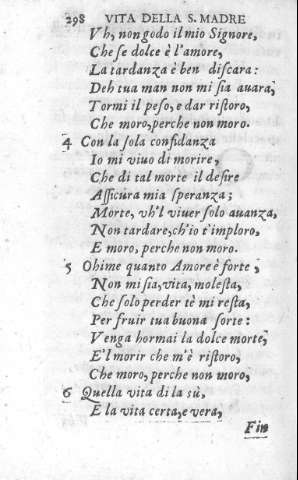 298 VITA DELLA S. MADRE
Vh, non godo il mio Signore,
Che se dolce è l'amore,
La tardanza è ben discara:
Deh tua man non mi sia auara,
Tormi il peso, e dar ristoro,
Che moro, perche non moro.
4 Con la sola confidanza
Io mi viuo di morire,
Che di tal morte il desire
Assicura mia speranza;
Morte, vh'l viuer solo auanza,
Non tardare, ch'io t'imploro,
E moro, perche non moro.
5 Ohime quanto Amore è forte,
Non mi sia, vita, molesta,
Che solo perder tè mi resta,
Per fruir tua buona sorte:
Venga hormai la dolce morte,
E'l morir che m'è ristoro,
Che moro, perche non moro,
6 Quella vita di la sù,
E la vita certa, e vera,
Fin